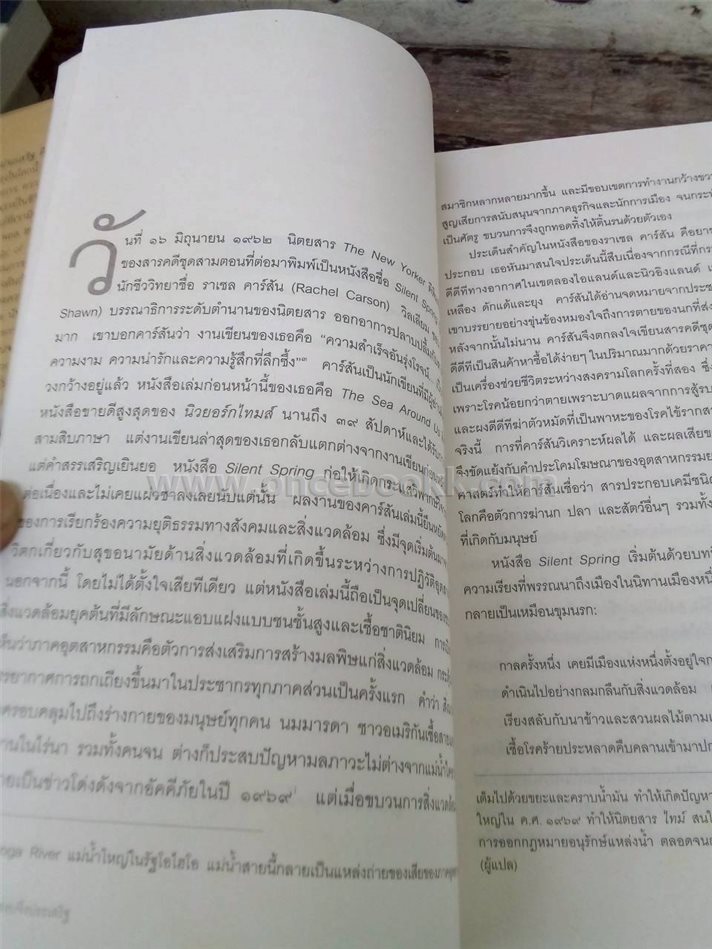 วันที่ ๑๖ มิถุนายน ๑๙๖๒ นิตยสาร The New Yorker
ของสารคดีชุดสามตอนที่ต่อมาพิมพ์เป็นหนังสือชื่อ Silent Spring
นักชีววิทยาชื่อ ราเชล คาร์สัน (Rachel Carson) วิลเลียม
Shawn) บรรณาธิการระดับตำนานของนิตยสาร ออกอาการปลาบปลื้ม
มาก เขาบอกคาร์สันว่า งานเขียนของเธอคือ “ความสำเร็จอันรุ่งโรจน์
ความงาม ความน่ารักและความรู้สึกที่ลึกซึ้ง” คาร์สันเป็นนักเขียนที่มี
วงกว้างอยู่แล้ว หนังสือเล่มก่อนหน้านี้ของเธอคือ The Sea Around Us
หนังสือขายดีสูงสุดของ นิวยอร์กไทมส์ นานถึง ๓๙ สัปดาห์และได้รับ
สามสิบภาษา แต่งานเขียนล่าสุดของเธอกลับแตกต่างจากงานเขียน
แต่คำสรรเสริญเยินยอ หนังสือ Silent Spring ก่อให้เกิดกระแส
ต่อเนื่องและไม่เคยแผ่วซาลงเลยนับแต่นั้น ผลงานของคาร์สันเล่มนี้ยืนหยัด
ของการเรียกร้องความยุติธรรมทางสังคมและสิ่งแวดล้อม ซึ่งมีจุดเริ่มต้น
วิตกเกี่ยวกับสุขอนามัยด้านสิ่งแวดล้อมที่เกิดขึ้นระหว่างการปฏิวัติ
นอกจากนี้ โดยไม่ได้ตั้งใจเสียทีเดียว แต่หนังสือเล่มนี้ถือเป็นจุดเปลี่ยนของ
สิ่งแวดล้อมยุคต้นที่มีลักษณะแอบแฝงแบบชนชั้นสูงและเชื้อชาตินิยม
ห็นว่าภาคอุตสาหกรรมคือตัวการส่งเสริมการสร้างมลพิษแก่สิ่งแวดล้อม
รยากาศการถกเถียงขึ้นมาในประชากรทุกภาคส่วนเป็นครั้งแรก คำว่า
ครอบคลุมไปถึงร่างกายของมนุษย์ทุกคน นมมารดา ชาวอเมริกันเชื้อสาย
านในไร่นา รวมทั้งคนจน ต่างก็ประสบปัญหามลภาวะไม่ต่างจากแม่น้ำ
ายเป็นข่าวโด่งดังจากอัคคีภัยในปี ๑๙๖๙ แต่เมื่อขบวนการสิ่งแวดล้อม
oga River แม่น้ำใหญ่ในรัฐโอไฮโอ แม่น้ำสายนี้กลายเป็นแหล่งถ่ายของเสียของภาค
สมาชิกหลากหลายมากขึ้น และมีขอบเขตการทำงานกว้างขวา
สูญเสียการสนับสนุนจากภาคธุรกิจและนักการเมือง จนกระ
เป็นศัตรู ขบวนการจึงถูกทอดทิ้งให้ดิ้นรนด้วยตัวเอง
ประเด็นสำคัญในหนังสือของราเชล คาร์สัน คือ
ประกอบ เธอหันมาสนใจประเด็นนี้สืบเนื่องจากกรณีที่
ดีดีทีทางอากาศในเขตลองไอแลนด์และนิวอิงแลนด์
เหลือง ดักแด้และยุง คาร์สันได้อ่านจดหมายจากประ
เขาบรรยายอย่างขุ่นข้องหมองใจถึงการตายของนกที่
หลังจากนั้นไม่นาน คาร์สันจึงตกลงใจเขียนสารคดี
ดีดีทีเป็นสินค้าหาซื้อได้ง่ายๆ ในปริมาณมากด้วยราคา
เป็นเครื่องช่วยชีวิตระหว่างสงครามโลกครั้งที่สอง
เพราะโรคน้อยกว่าตายเพราะบาดแผลจากการสู้รบ
และผงดีดีทีฆ่าตัวหมัดที่เป็นพาหะของโรคไข้ราก
จริงนี้ การที่คาร์สันวิเคราะห์ผลได้ และผลเสีย
จึงขัดแย้งกับคำประโคมโฆษณาของอุตสาหกรรม
ศาสตร์ทำให้คาร์สันเชื่อว่า สารประกอบเคมี
โลกคือตัวการฆ่านก ปลา และสัตว์อื่นๆ รวมทั้ง
ที่เกิดกับมนุษย์
หนังสือ Silent Spring เริ่มต้นด้วยบท
ความเรียงที่พรรณนาถึงเมืองในนิทานเมืองหนึ่
กลายเป็นเหมือนขุมนรก:
กาลครั้งหนึ่ง เคยมีเมืองแห่งหนึ่งตั้งอยู่ใจ
ดำเนินไปอย่างกลมกลืนกับสิ่งแวดล้อม
เรียงสลับกับนาข้าวและสวนผลไม้ตาม
เชื้อโรคร้ายประหลาดคืบคลานเข้ามา
เต็มไปด้วยขยะและคราบน้ำมัน ทำให้เกิดปัญหา
ใหญ่ใน ค.ศ. ๑๙๖๙ ทำให้นิตยสาร ไทม์
การออกกฎหมายอนุรักษ์แหล่งน้ำ ตลอดจน
(ผู้แปล)